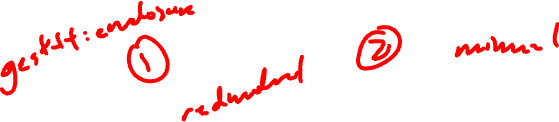 gestalt: enclosure
1
redundant
2
minimal